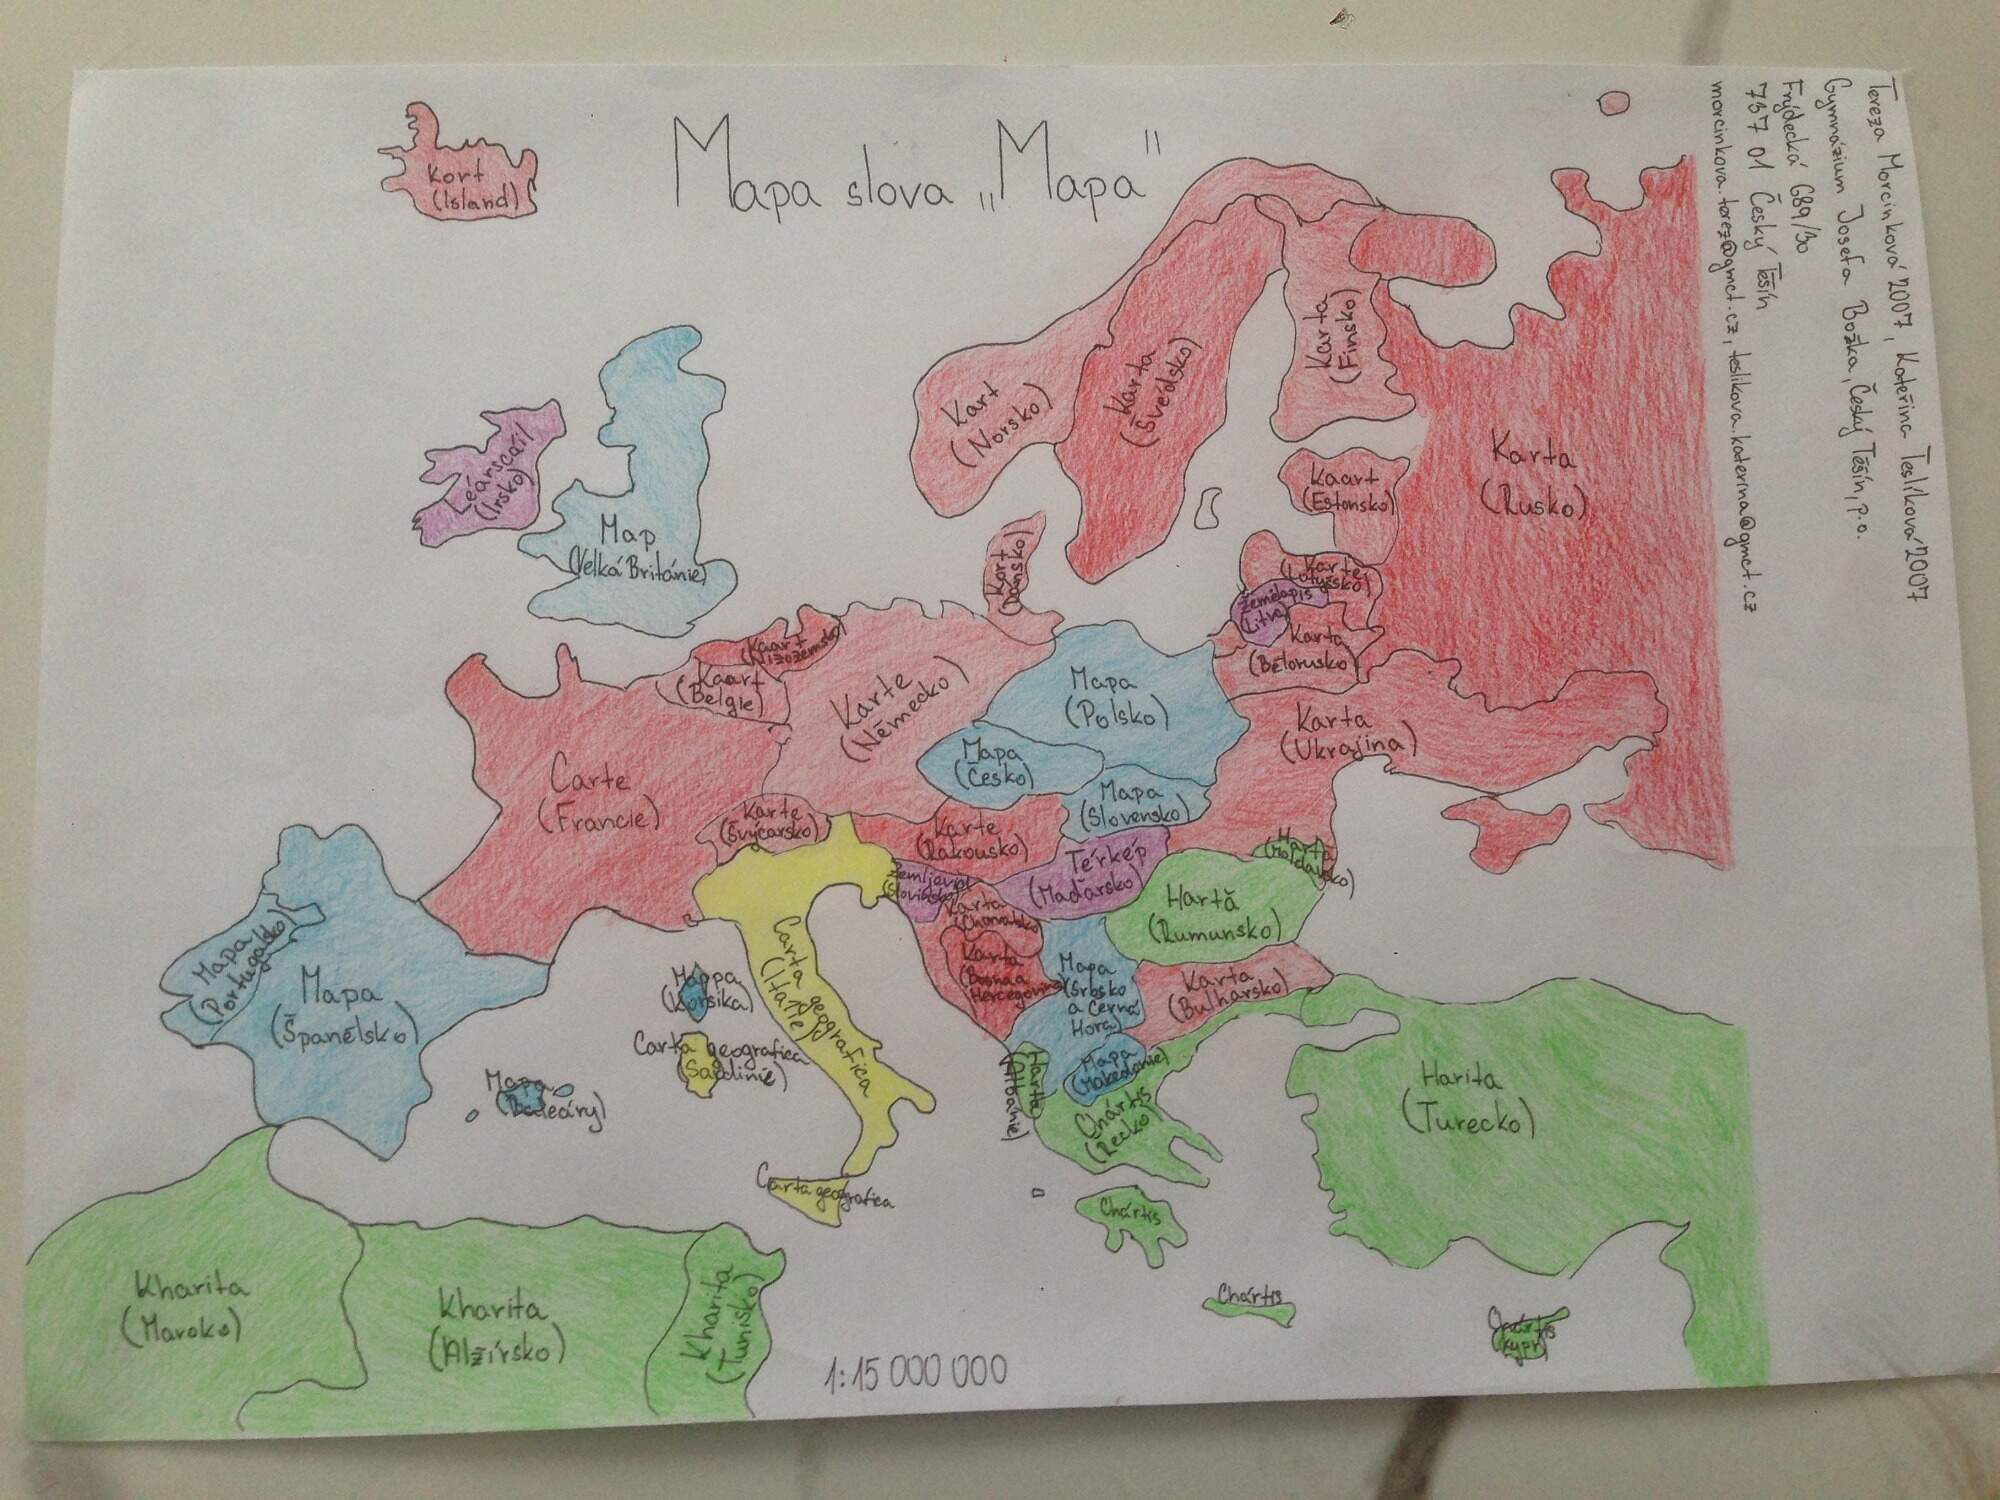 Mapa slova „Mapa"
Tereza Morcinková 2007, Kateřina Teslíková 2007
Gymnázium Josefa Božka, Český Těšín, p.o.
Frýdecká 689/30
737 01 Český Těšín
morcinkova.tereza@gmct.cz, teslikova.katerina@gmct.cz
Kort
(Island)
Leárscáil
(Irsko)
Map
(Velká Británie)
Kart
(Norsko)
Karta
(Švédsko)
Karta
(Finsko)
Karta
(Rusko)
Kaart
(Estonsko)
Karte
(Lotyšsko)
Žemėlapis
(Litva)
Karta
(Bělorusko)
Kort
(Dánsko)
Kaart
(Nizozemsko)
Kaart
(Belgie)
Karte
(Německo)
Mapa
(Polsko)
Mapa
(Česko)
Mapa
(Slovensko)
Karta
(Ukrajina)
Carte
(Francie)
Karte
(Švýcarsko)
Karte
(Rakousko)
Térkép
(Maďarsko)
Harta
(Moldavsko)
Hartă
(Rumunsko)
Zemljevid
(Slovinsko)
Karta
(Chorvatsko)
Karta
(Bosna a
Hercegovina)
Mapa
(Srbsko
a Černá
Hora)
Karta
(Bulharsko)
Mapa
(Makedonie)
Harta
(Albánie)
Chártis
(Řecko)
Chártis
Chártis
Chártis
(Kypr)
Harita
(Turecko)
Carta geografica
(Itálie)
Mappa
(Korsika)
Carta geografica
(Sardinie)
Carta geografica
Mapa
(Portugalsko)
Mapa
(Španělsko)
Mapa
(Baleáry)
Kharita
(Maroko)
Kharita
(Alžírsko)
Kharita
(Tunisko)
1:15 000 000